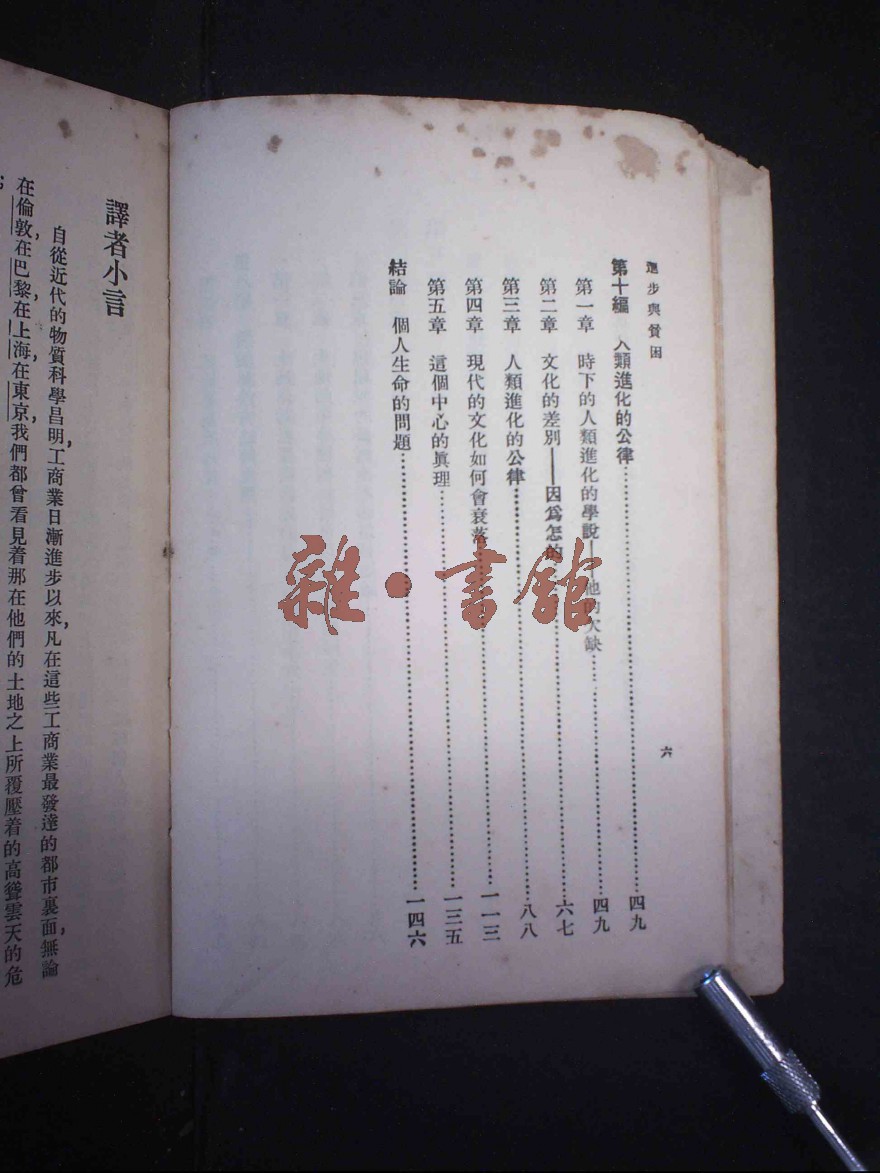 進步與貧困
第十編 人類進化的公律……四九
第一章 時下的人類進化的學說——他的欠缺……四九
第二章 文化的差別——因爲怎的……六七
第三章 人類進化的公律……八八
第四章 現代的文化如何會衰落……一一三
第五章 這個中心的眞理……一三五
結論 個人生命的問題……一四六
六
譯者小言
自從近代的物質科學昌明，工商業日漸進步以來，凡在這些工商業最發達的都市裏面，無論
在倫敦，在巴黎，在上海，在東京，我們都曾看見着那在他們的土地之上所覆壓着的高聳雲天的危
雜·書館